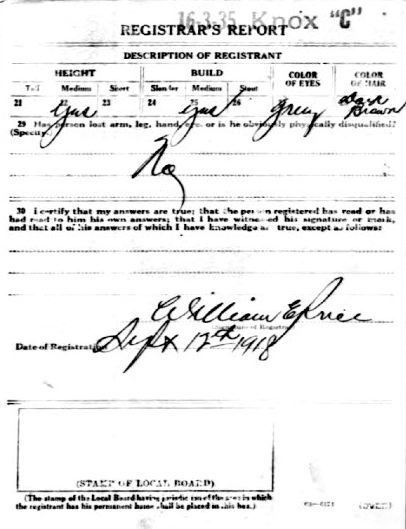 16-3-35 Knox "C"
REGISTRAR'S REPORT
DESCRIPTION OF REGISTRANT
HEIGHT BUILD COLOR OF EYES COLOR OF HAIR
Tall Medium Short Slender Medium Stout
21 22 23 24 25 26
yes yes Grey Dark Brown
29 Has person lost arm, leg, hand, eye, or is he obviously physically disqualified?
(Specify.)
No
30 I certify that my answers are true; that the person registered has read or has
had read to him his own answers; that I have witnessed his signature or mark,
and that all of his answers of which I have knowledge are true, except as follows:
William E Price
(Signature of Registrar)
Date of Registration Sept 12th 1918
(STAMP OF LOCAL BOARD)
(The stamp of the Local Board having jurisdiction of the area in which
the registrant has his permanent home shall be placed in this box.)
(OVER)